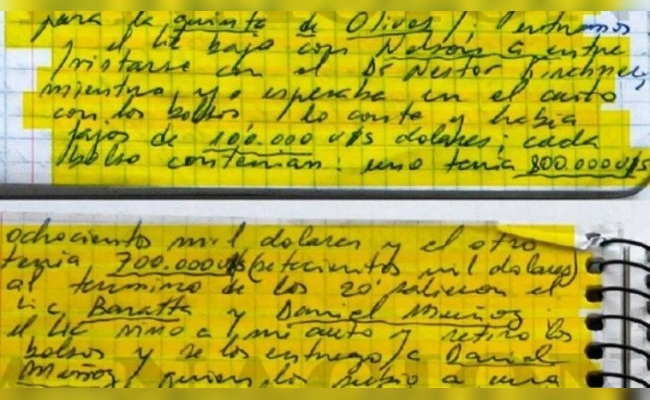 para la quinta de Olivos /. entramos
y el Lic bajo con Nelson a entre
/vistarse con el Dr Nestor Kirchner,
mientra, yo esperaba en el auto
con los bolsos, lo conte y habia
fajos de 100.000 u$s dolares; cada
bolso contenian: uno tenia 800.000 u$s
ochocientos mil dolares y el otro
tenia 700.000 u$s (setecientos mil dolares)
al termino de los 20' salieron el
Lic Baratta y Daniel Muñoz
el Lic vino a mi auto y retiro los
bolsos y se los entrego a Daniel
Muñoz, quien los subio a una